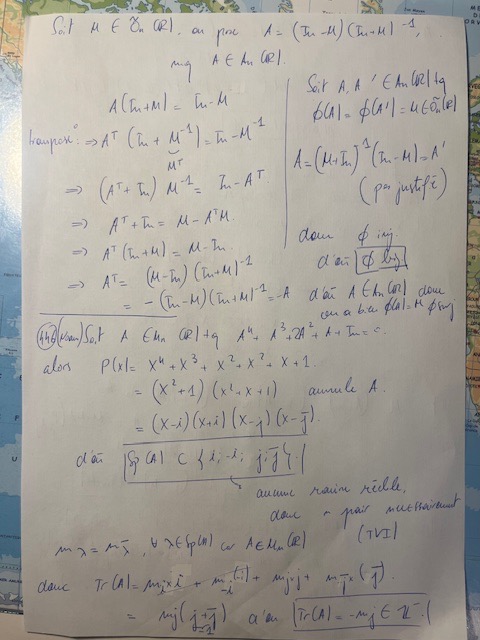 Soit M ∈ Õn(R), on pose A = (In - M)(In + M)^-1,
mq A ∈ An(R).
A(In+M) = In - M
transpose° ⇒ A^T (In + M^-1) = In - M^-1
M^T
⇒ (A^T + In) M^-1 = In - A^T
⇒ A^T + In = M - A^T M.
⇒ A^T (In + M) = M - In.
⇒ A^T = (M - In)(In + M)^-1
= -(In - M)(In + M)^-1 = -A
Soit A, A' ∈ An(R) tq
ϕ(A) = ϕ(A') = M ∈ Õn(R)
A = (M + In)^-1 (In - M) = A'
(pas justifié)
donc ϕ inj.
d'où ϕ bij
d'où A ∈ An(R) donc
on a bien ϕ(A) = M ϕ surj
446 Soit A ∈ Mn(R) tq A^4 + A^3 + 2A^2 + A + In = 0.
alors P(X) = X^4 + X^3 + X^2 + X^2 + X + 1.
= (X^2+1)(X^2+X+1) annule A.
= (X-i)(X+i)(X-j)(X-j̄)
d'où Sp(A) ⊂ {i; -i; j; j̄}.
aucune racine réelle,
donc n pair nécessairement
(TVI)
mλ = mλ̄, ∀ λ ∈ Sp(A) car A ∈ Mn(R)
donc Tr(A) = mi×i + m-i(-i) + mj×j + mj̄×(j̄).
= mj(j+j̄) d'où Tr(A) = -mj ∈ Z^-.
-1